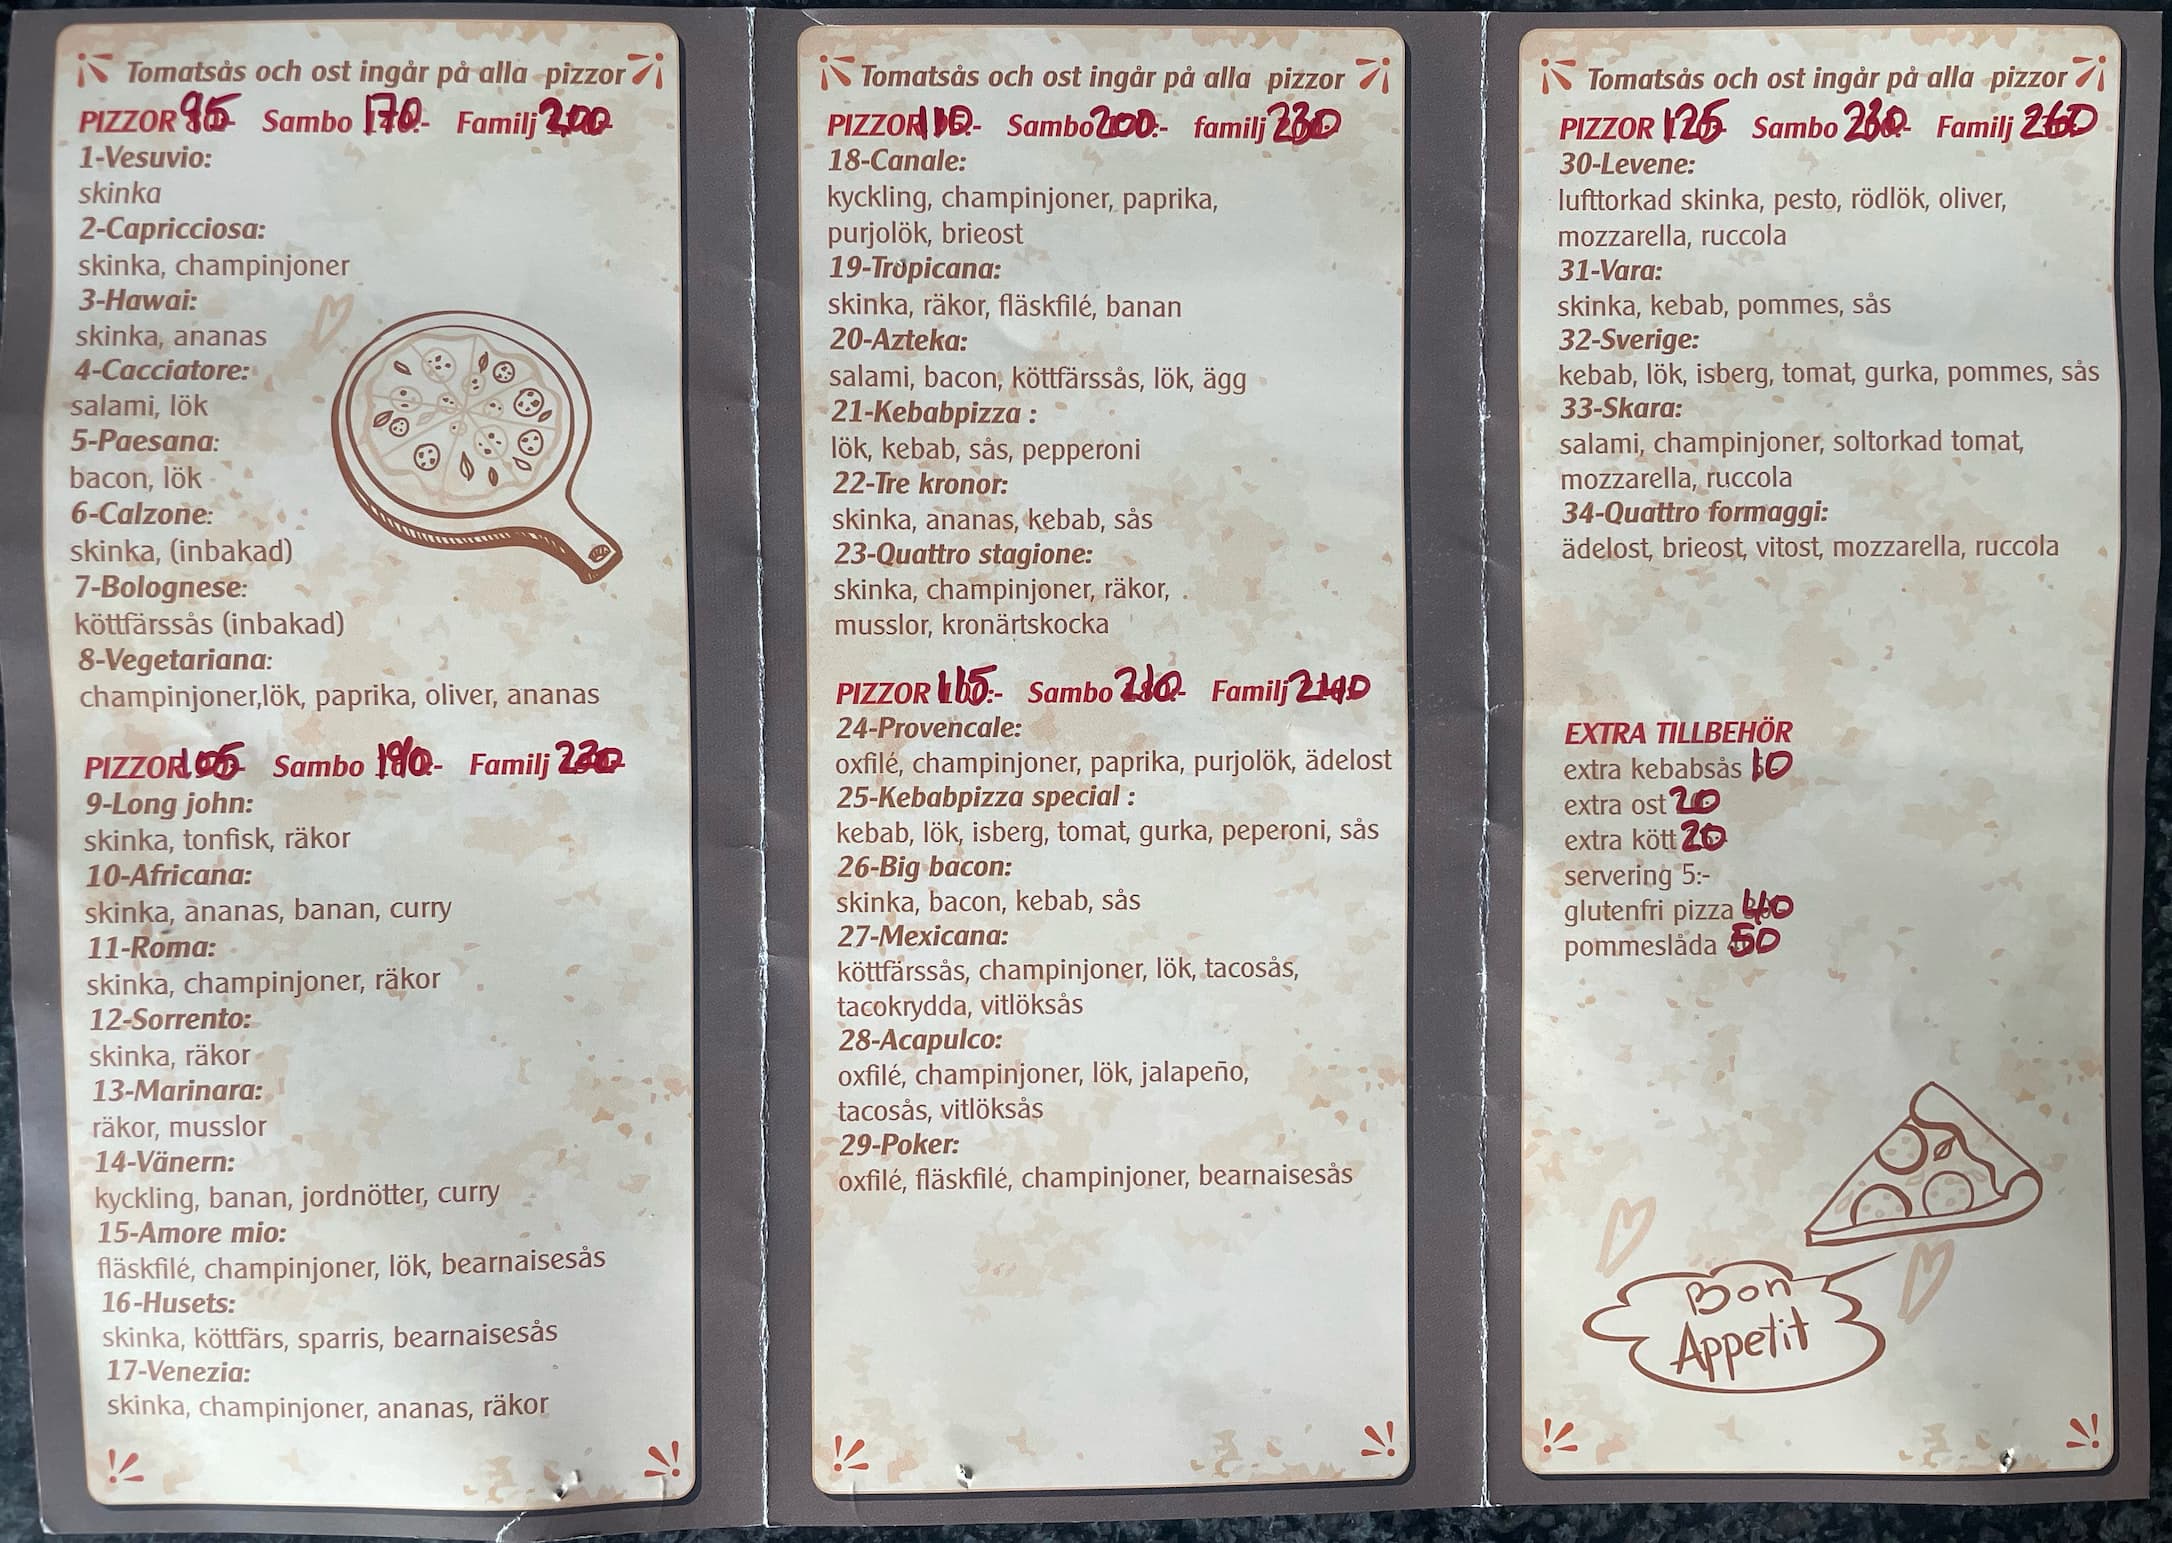 Tomatsås och ost ingår på alla pizzor
PIZZOR 95 Sambo 170:- Familj 200
1-Vesuvio:
skinka
2-Capricciosa:
skinka, champinjoner
3-Hawai:
skinka, ananas
4-Cacciatore:
salami, lök
5-Paesana:
bacon, lök
6-Calzone:
skinka, (inbakad)
7-Bolognese:
köttfärssås (inbakad)
8-Vegetariana:
champinjoner,lök, paprika, oliver, ananas
PIZZOR 105 Sambo 190:- Familj
9-Long john:
skinka, tonfisk, räkor
10-Africana:
skinka, ananas, banan, curry
11-Roma:
skinka, champinjoner, räkor
12-Sorrento:
skinka, räkor
13-Marinara:
räkor, musslor
14-Vänern:
kyckling, banan, jordnötter, curry
15-Amore mio:
fläskfilé, champinjoner, lök, bearnaisesås
16-Husets:
skinka, köttfärs, sparris, bearnaisesås
17-Venezia:
skinka, champinjoner, ananas, räkor
Tomatsås och ost ingår på alla pizzor
PIZZOR 110:- Sambo 200:- familj 230
18-Canale:
kyckling, champinjoner, paprika,
purjolök, brieost
19-Tropicana:
skinka, räkor, fläskfilé, banan
20-Azteka:
salami, bacon, köttfärssås, lök, ägg
21-Kebabpizza :
lök, kebab, sås, pepperoni
22-Tre kronor:
skinka, ananas, kebab, sås
23-Quattro stagione:
skinka, champinjoner, räkor,
musslor, kronärtskocka
PIZZOR 115:- Sambo 210:- Familj 240
24-Provencale:
oxfilé, champinjoner, paprika, purjolök, ädelost
25-Kebabpizza special :
kebab, lök, isberg, tomat, gurka, peperoni, sås
26-Big bacon:
skinka, bacon, kebab, sås
27-Mexicana:
köttfärssås, champinjoner, lök, tacosås,
tacokrydda, vitlöksås
28-Acapulco:
oxfilé, champinjoner, lök, jalapeño,
tacosås, vitlöksås
29-Poker:
oxfilé, fläskfilé, champinjoner, bearnaisesås
Tomatsås och ost ingår på alla pizzor
PIZZOR 125 Sambo 230:- Familj 260
30-Levene:
lufttorkad skinka, pesto, rödlök, oliver,
mozzarella, ruccola
31-Vara:
skinka, kebab, pommes, sås
32-Sverige:
kebab, lök, isberg, tomat, gurka, pommes, sås
33-Skara:
salami, champinjoner, soltorkad tomat,
mozzarella, ruccola
34-Quattro formaggi:
ädelost, brieost, vitost, mozzarella, ruccola
EXTRA TILLBEHÖR
extra kebabsås 10
extra ost 20
extra kött 20
servering 5:-
glutenfri pizza 40
pommeslåda 50
Bon
Appetit